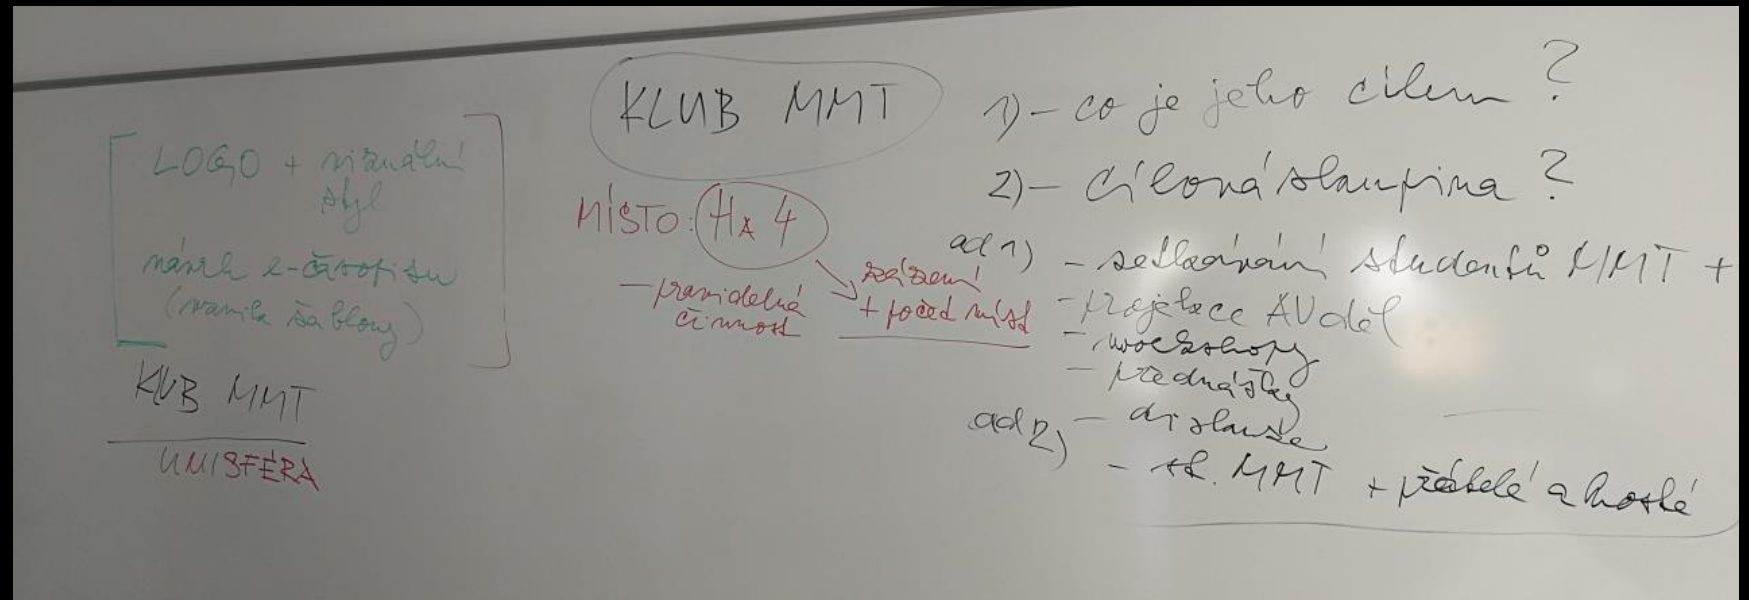 LOGO + vizuální
styl
návrh e-časopisu
(vznik šablony)
KLUB MMT
UMISFÉRA
KLUB MMT
MÍSTO: HA 4
- pravidelná
činnost
zázemí
+ počet míst
1) - co je jeho cílem ?
2) - Cílová skupina ?
ad 1) - setkávání studentů MMT +
- projekce AV děl
- workshopy
- přednášky
- diskuse
ad 2)
- st. MMT + přátelé a hosté